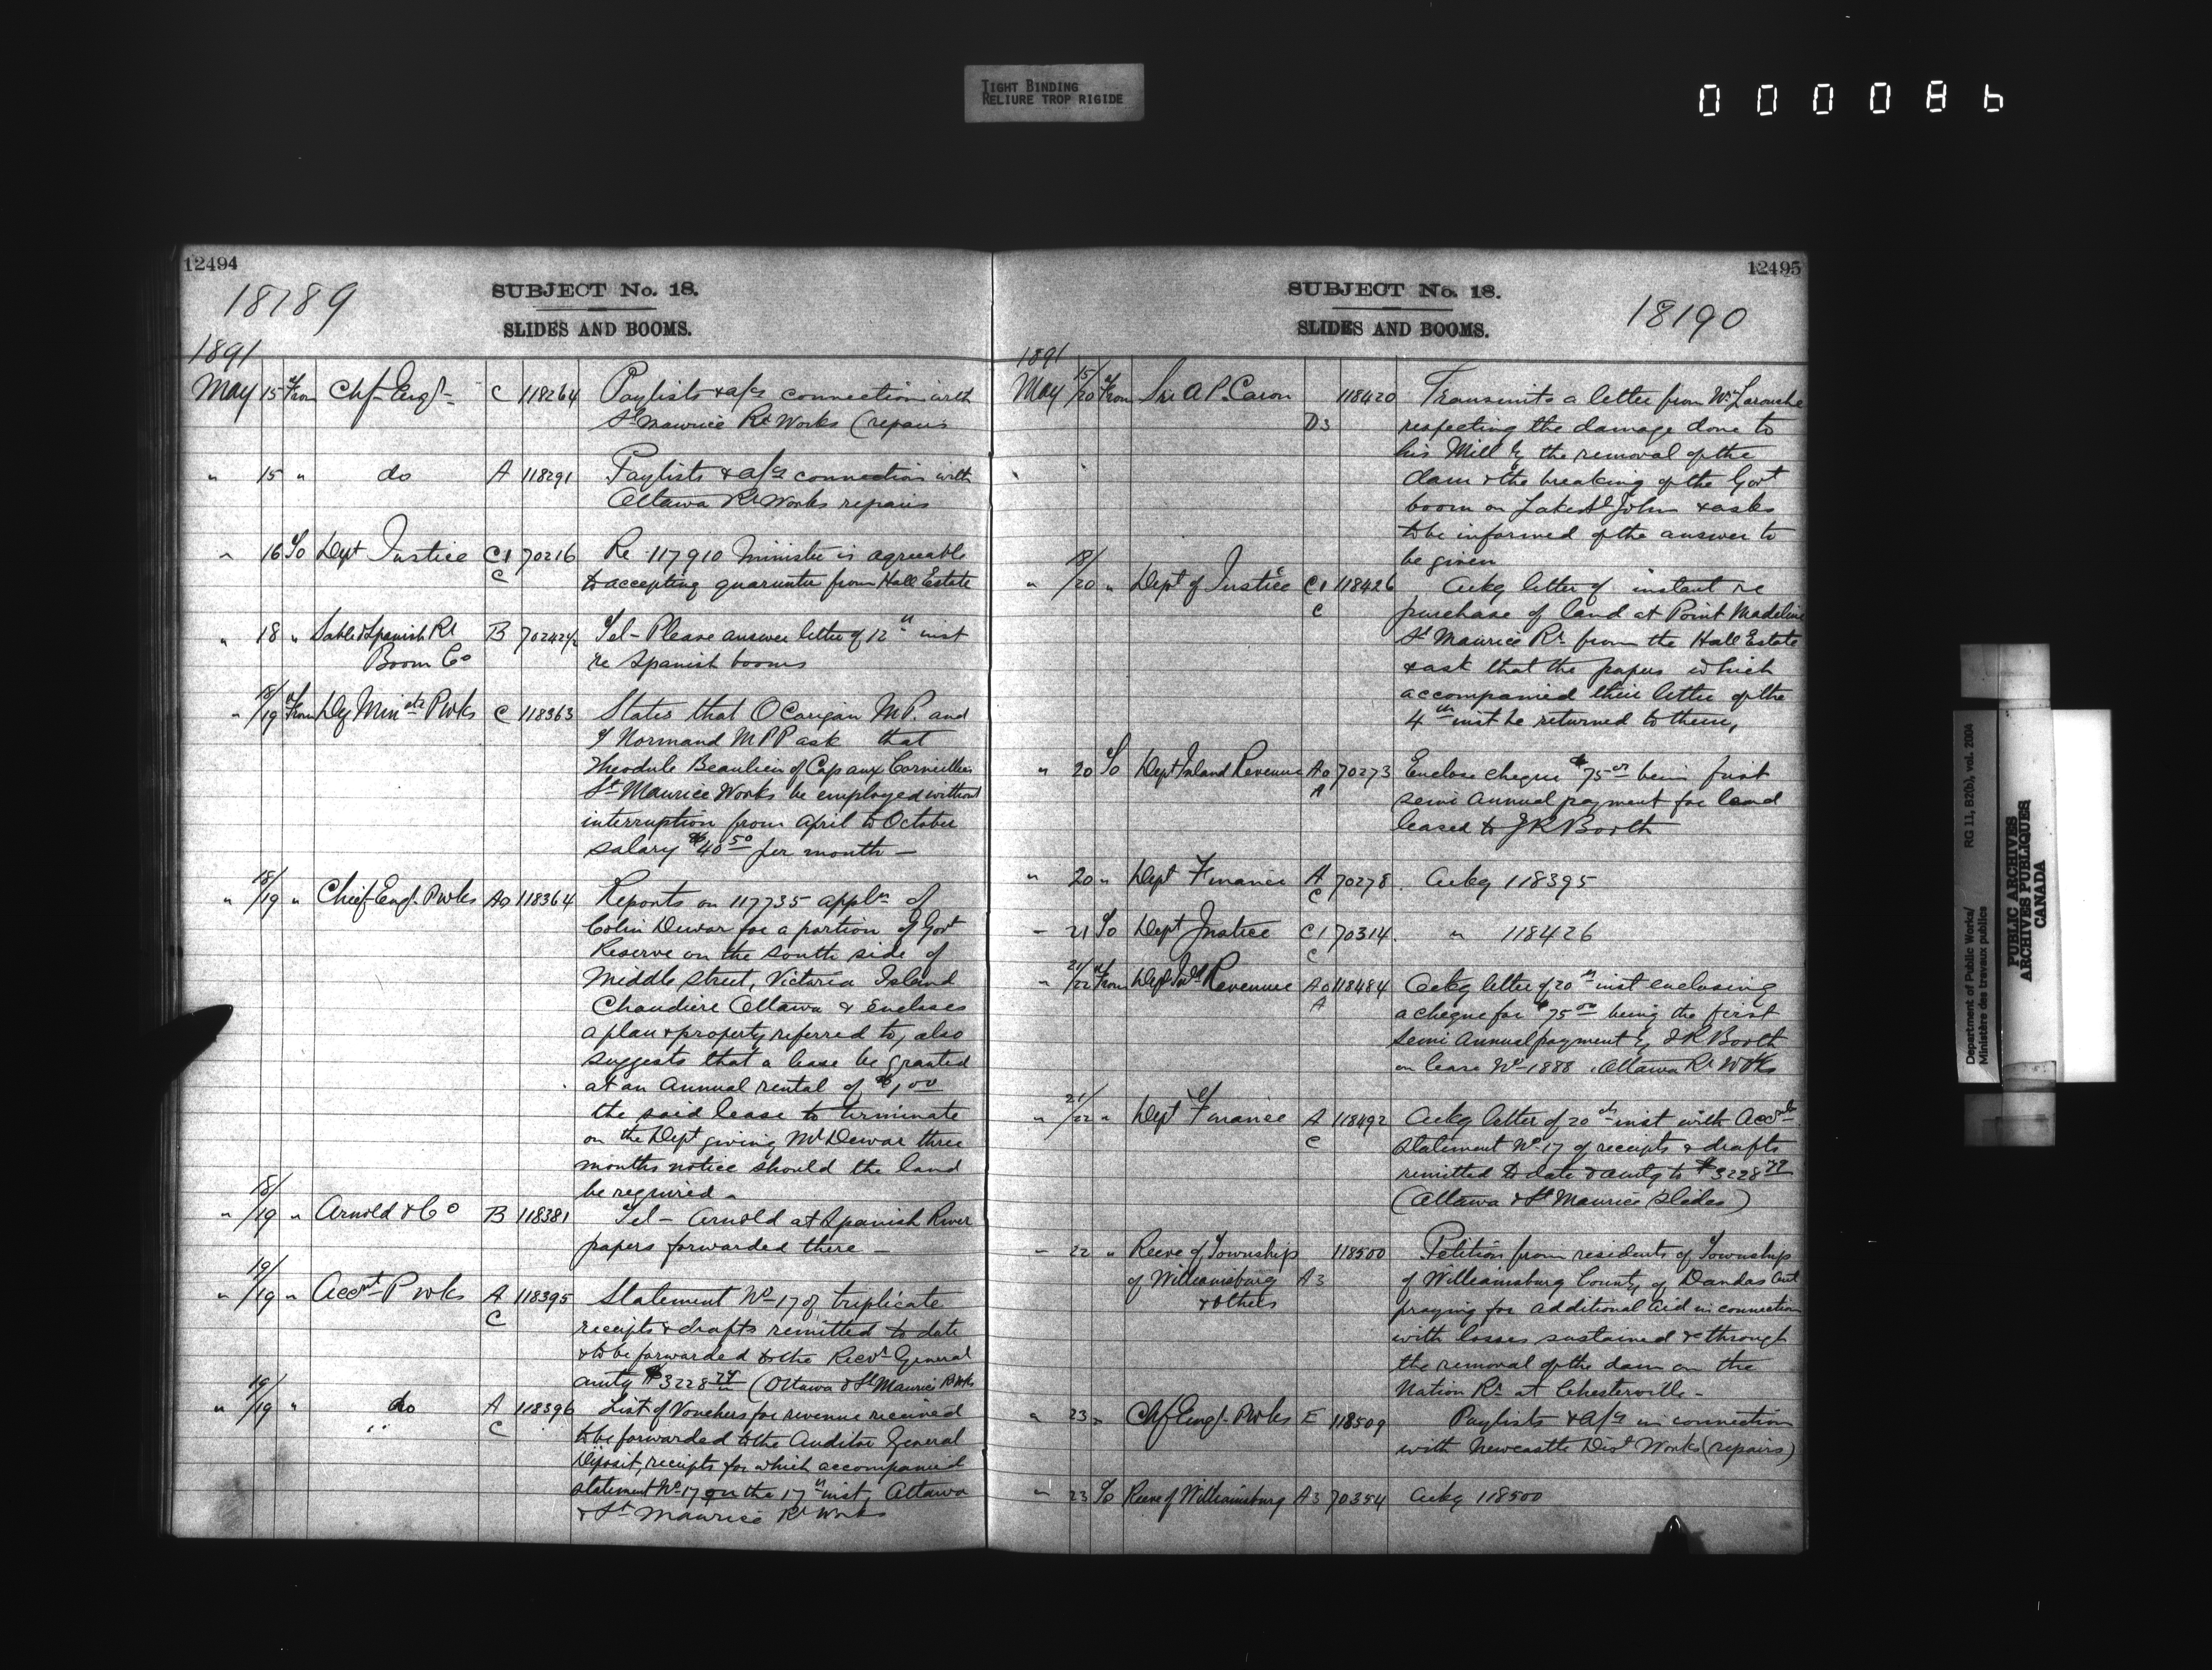 TIGHT BINDING
RELIURE TROP RIGIDE
000086
12494
SUBJECT No. 18.
18189
SLIDES AND BOOMS.
1891
May 15 From Chf Engr C 118264 Paylists & a/cs connection with
St Maurice Rr Works (repairs
" 15 " do A 118291 Paylists & a/cs connection with
Ottawa Rr Works repairs
" 16 To Dept Justice C1 70216 Re 117910 Minister is agreeable
C to accepting guaruntee from Hall Estate
" 18 " Sable & Spanish Rr B 70242½ Tel - Please answer letter of 12th inst
Boom Co re Spanish booms
" 18/19 From Dy Minstr P Wks C 118363 States that O Carigan M.P. and
Normand M P P ask that
Theodule Beaulieu of Cap aux Corneilles
St Maurice Works be employed without
interruption from April to October
salary $40 50 per month -
" 18/19 " Chief Engr P wks Ao 118364 Reports on 117735 appln of
Colin Dewar for a portion of Govt
Reserve on the south side of
Middle Street, Victoria Island
Chaudiere Ottawa & encloses
a plan & property referred to, also
suggests that a lease be granted
at an Annual rental of $1,00
the said lease to terminate
on the Dept giving Mr Dewar three
months notice should the land
be required -
" 18/19 " Arnold & Co B 118381 Tel - Arnold at Spanish River
papers forwarded there -
" 19/19 " Acct P wks A 118395 Statement No 17 of triplicate
C receipts & drafts remitted to date
& to be forwarded to the Recvr General
amtg $3228 (Ottawa & St Maurice R Wks
" 19/19 " do A 118396 List of Vouchers for revenue received
C to be forwarded to the Auditor General
Deposit, receipts for which accompanied
statement No 17 on the 17th inst, Ottawa
& St Maurice Rr Works
12495
SUBJECT No. 18.
18190
SLIDES AND BOOMS.
1891
May 15/20 From Sir A P. Caron 118420 Transmits a letter from Wm Larouche
D3 respecting the damage done to
his Mill by the removal of the
dam & the breaking of the Govt
boom on Lake St John & asks
to be informed of the answer to
be given
" 18/20 " Dept of Justice C1 118426 Ackg letter of instant re
C purchase of land at Point Madeline
St Maurice Rr from the Hall Estate
& ask that the papers which
accompanied their letter of the
4th inst be returned to them,
" 20 To Dept Inland Revenue Ao 70273 Enclose cheque $75 00 being first
A semi annual payment for land
leased to J R Booth
" 20 " Dept Finance A 70278 Ackg 118395
C
" 21 To Dept Justice C1 70314 " 118426
C
" 21/22 From Dept Inld Revenue Ao 118484 Ackg letter of 20th inst enclosing
A a cheque for $75 00 being the first
semi annual payment by J R Booth
on lease No 1888. Ottawa Rr Wks
" 21/22 " Dept Finance A 118492 Ackg letter of 20th inst with Acctnts
C Statement No 17 of receipts & drafts
remitted to date & amtg to $3228
(Ottawa & St Maurice Slides)
" 22 " Reeve of Township 118500 Petition from residents of Township
of Williamsburg A3 of Williamsburg County of Dundas Ont
& others praying for additional aid in connection
with losses sustained & through
the removal of the dam on the
Nation Rr at Chesterville -
" 23 " Chf Engr P wks E 118509 Paylists & a/cs in connection
with Newcastle Dist Works (repairs)
" 23 To Reeve of Williamsburg A3 70354 Ackg 118500
Department of Public Works/ RG 11, B2(b), vol. 2004
Ministère des travaux publics
PUBLIC ARCHIVES
ARCHIVES PUBLIQUES
CANADA